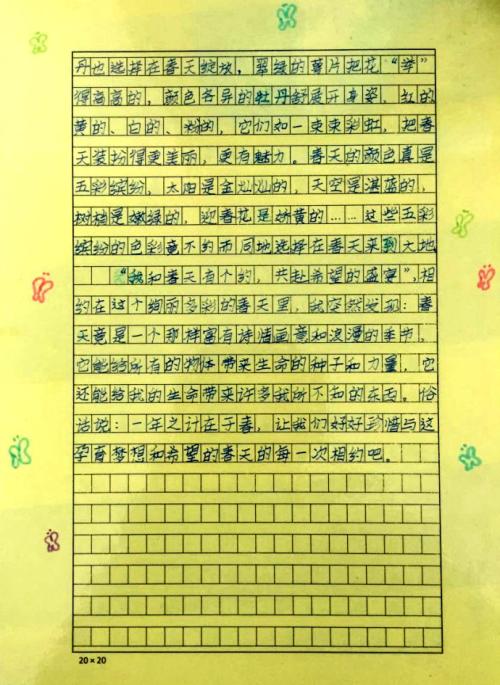 丹也选择在春天绽放，翠绿的萼片把花“举”
得高高的，颜色各异的牡丹舒展开身姿，红的
黄的、白的、粉的，它们如一束束彩虹，把春
天装扮得更美丽，更有魅力。春天的颜色真是
五彩缤纷，太阳是金灿灿的，天空是湛蓝的，
树梢是嫩绿的，迎春花是娇黄的……这些五彩
缤纷的色彩竟不约而同地选择在春天来到大地
“我和春天有个约，共赴希望的盛宴”，相
约在这个绚丽多彩的春天里，我突然发现：春
天竟是一个那样富有诗情画意和浪漫的季节，
它能给所有的物体带来生命的种子和力量，它
还能给我的生命带来许多我所不知的东西。俗
话说：一年之计在于春，让我们好好珍惜与这
孕育梦想和希望的春天的每一次相约吧。
20×20